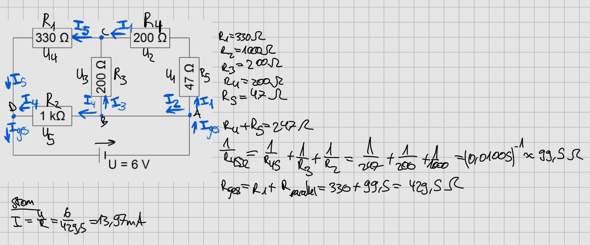 R1
I5
C
I1
R4
330 Ω
200 Ω
U4
U2
U3
200 Ω
R3
U1
47 Ω
R5
I5
D
I4
R2
I4
I3
I2
I1
1 kΩ
B
A
Iges
U5
Iges
U = 6 V
R1=330Ω
R2=1000Ω
R3=200Ω
R4=200Ω
R5=47Ω
R4+R5=247Ω
1/R45Ω = 1/R45 + 1/R3 + 1/R2 = 1/247 + 1/200 + 1/1000 = (0,01005)^-1 ≈ 99,5 Ω
Rges = R1 + Rparallel = 330 + 99,5 = 429,5 Ω
Strom
I = U/R = 6/429,5 = 13,97mA